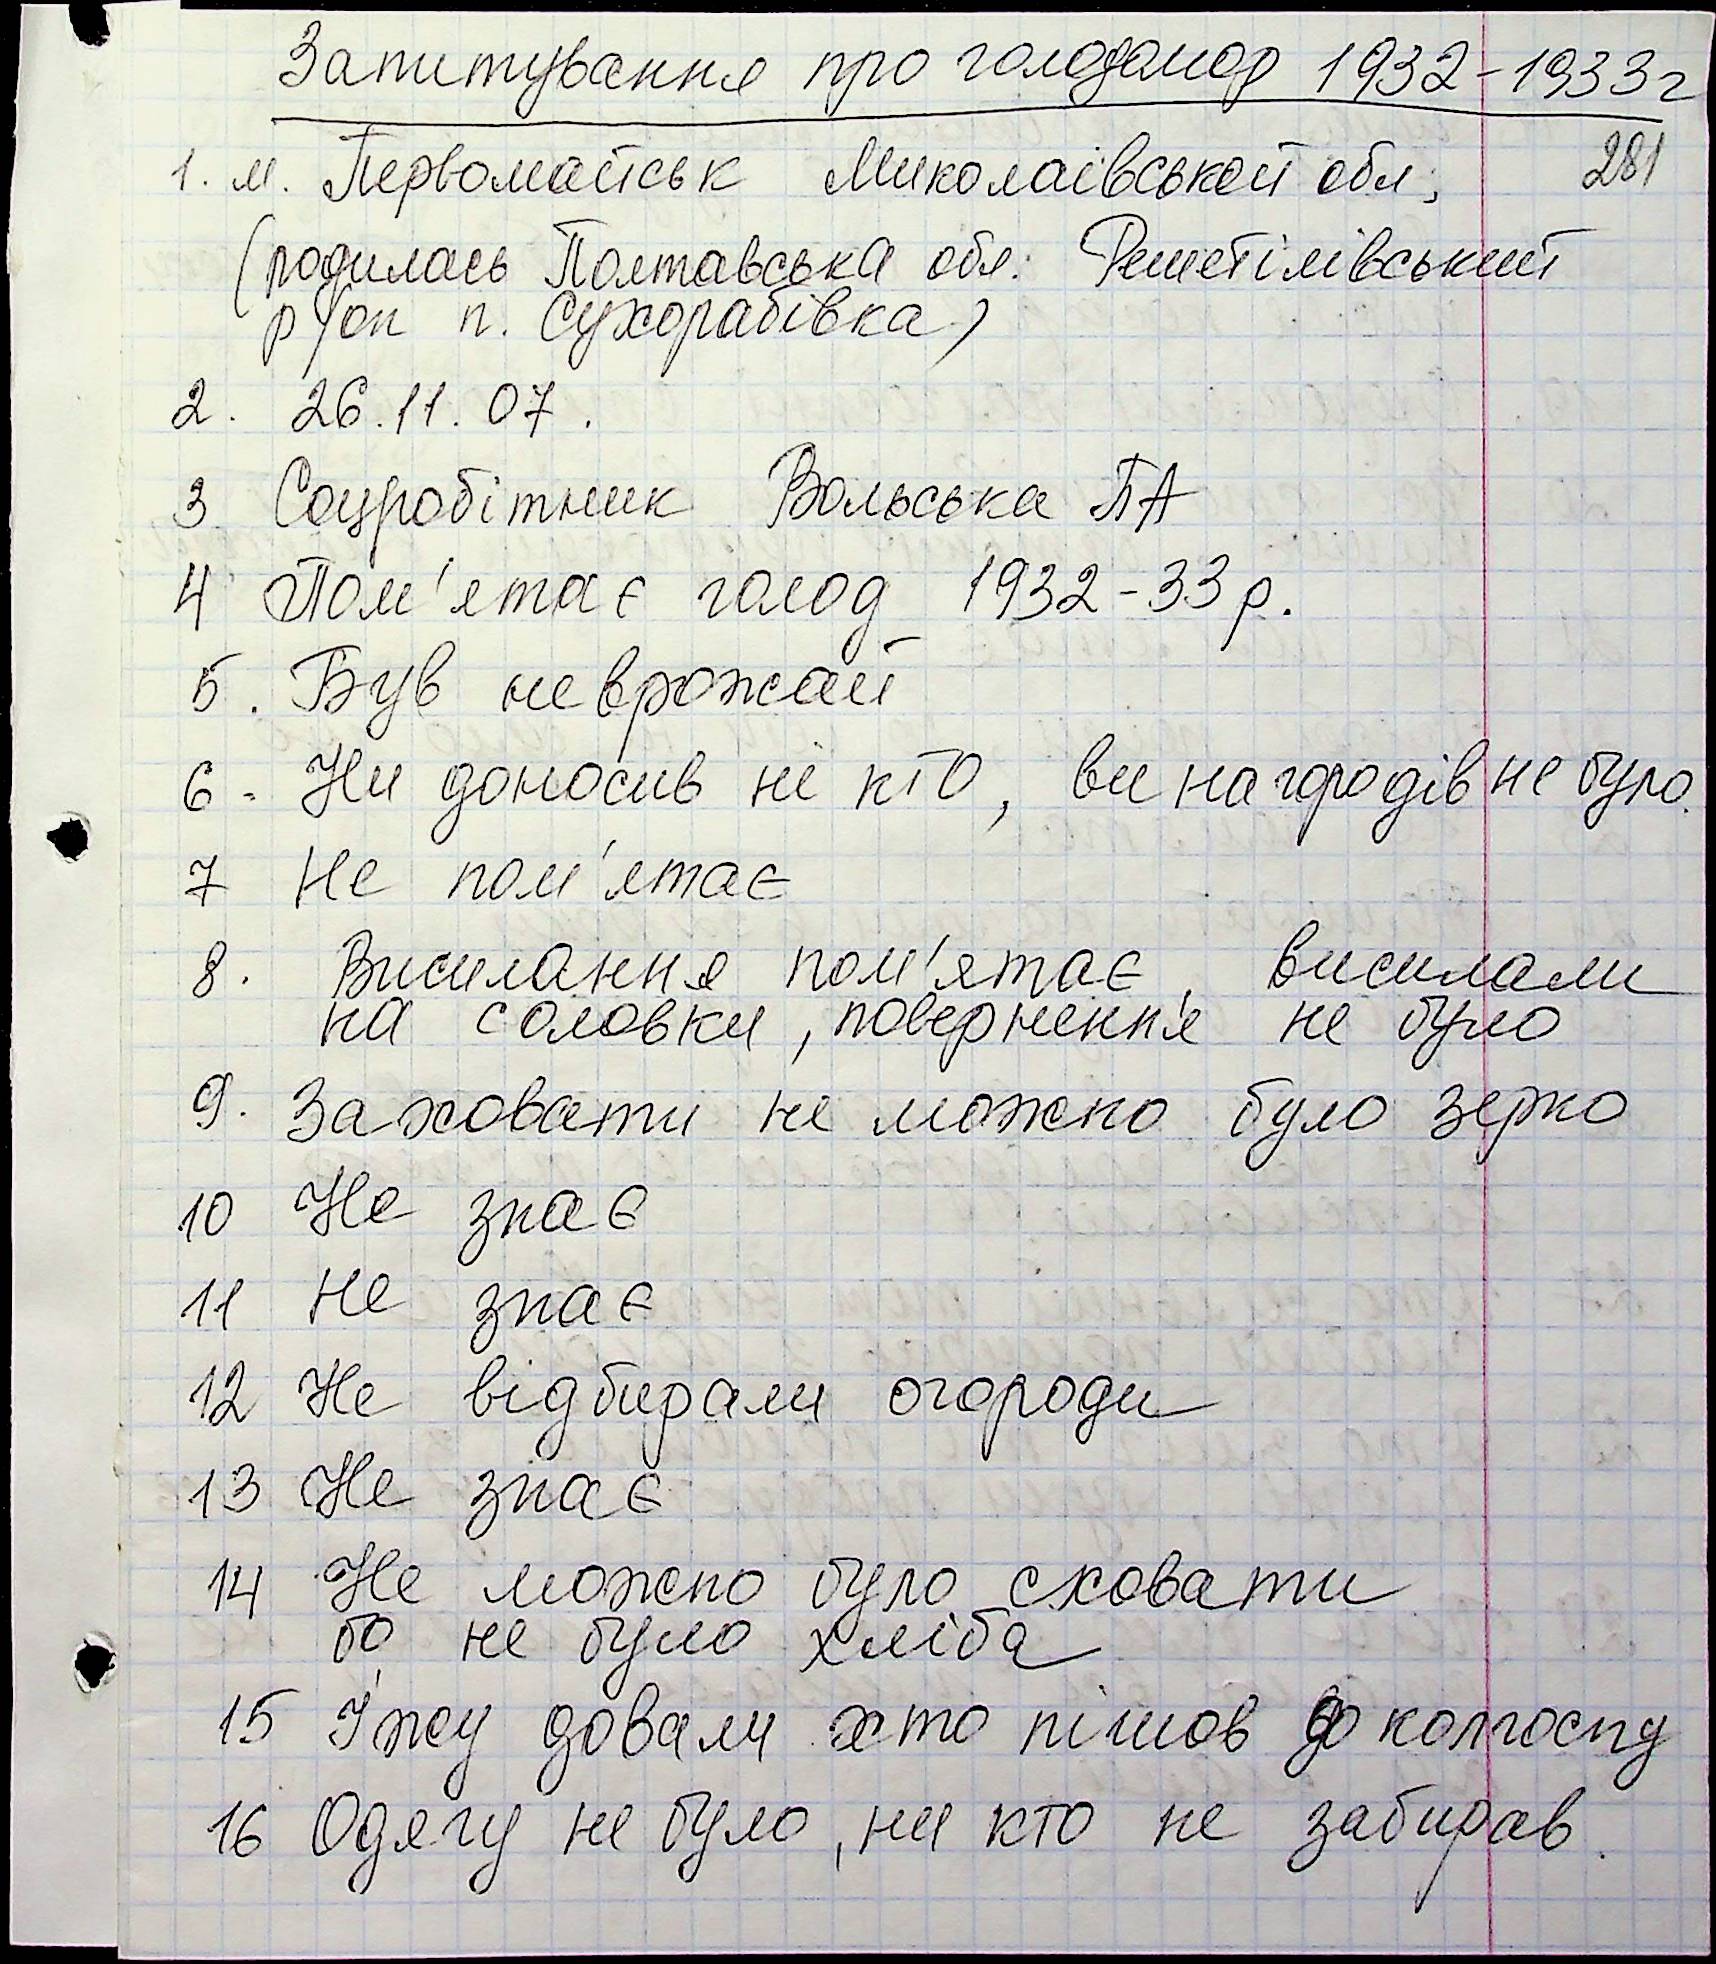 Запитування про голодомор 1932-1933г
1. м. Первомайськ Миколаівськой обл, 281
(родилась Полтавська обл. Решетілівський
р/он п. Сухорабівка)
2. 26.11.07.
3 Соцробітник Вольська ПА
4 Пом'ятає голод 1932-33р.
5. Був неврожай
6. Ни доносив ні кто, ви нагородів не було.
7 Не пом'ятає
8. Висилання пом'ятає, висилали
на соловки, повернення не було
9. Заховати не можно було зерно
10 Не знає
11 Не знає
12 Не відбирали огороди
13 Не знає
14 Не можно було сховати
бо не було хліба
15 Їжу довали хто пішов до колгоспу
16 Одягу не було, ни кто не забирав.